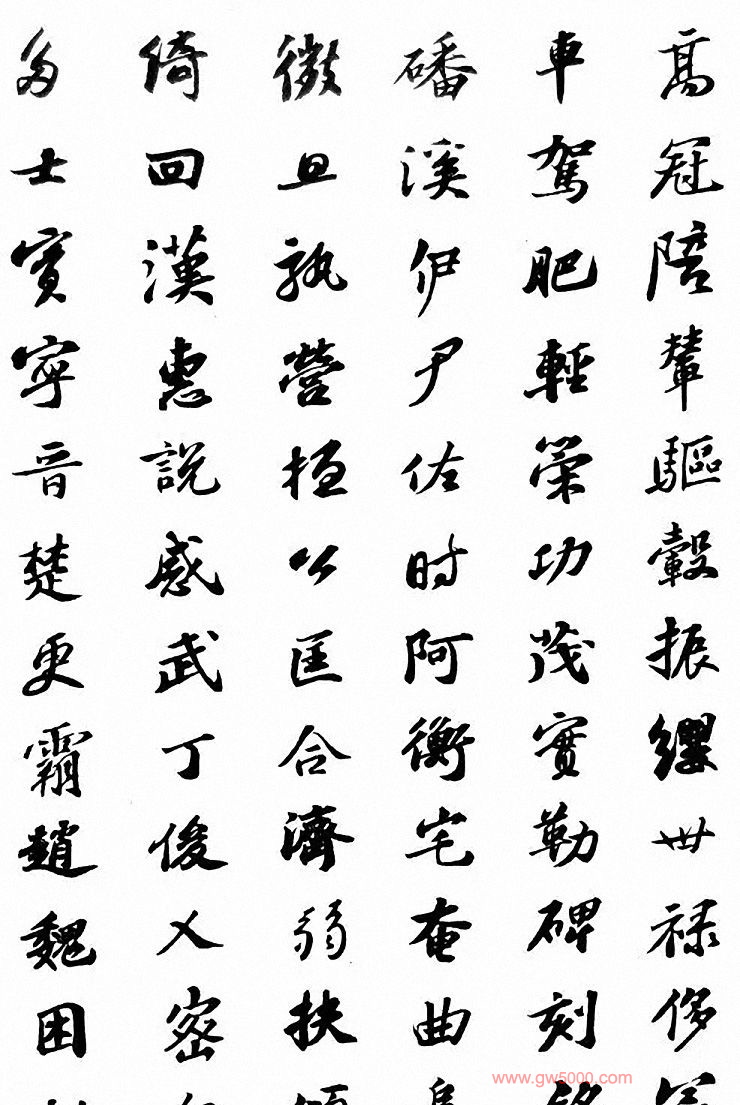 高冠陪輦驅轂振纓世禄侈
車駕肥輕策功茂實勒碑刻
磻溪伊尹佐时阿衡宅奄曲
微旦孰營桓公匡合濟弱扶
綺回漢惠說感武丁俊乂密
多士實寧晉楚更霸趙魏困
www.gw5000.com